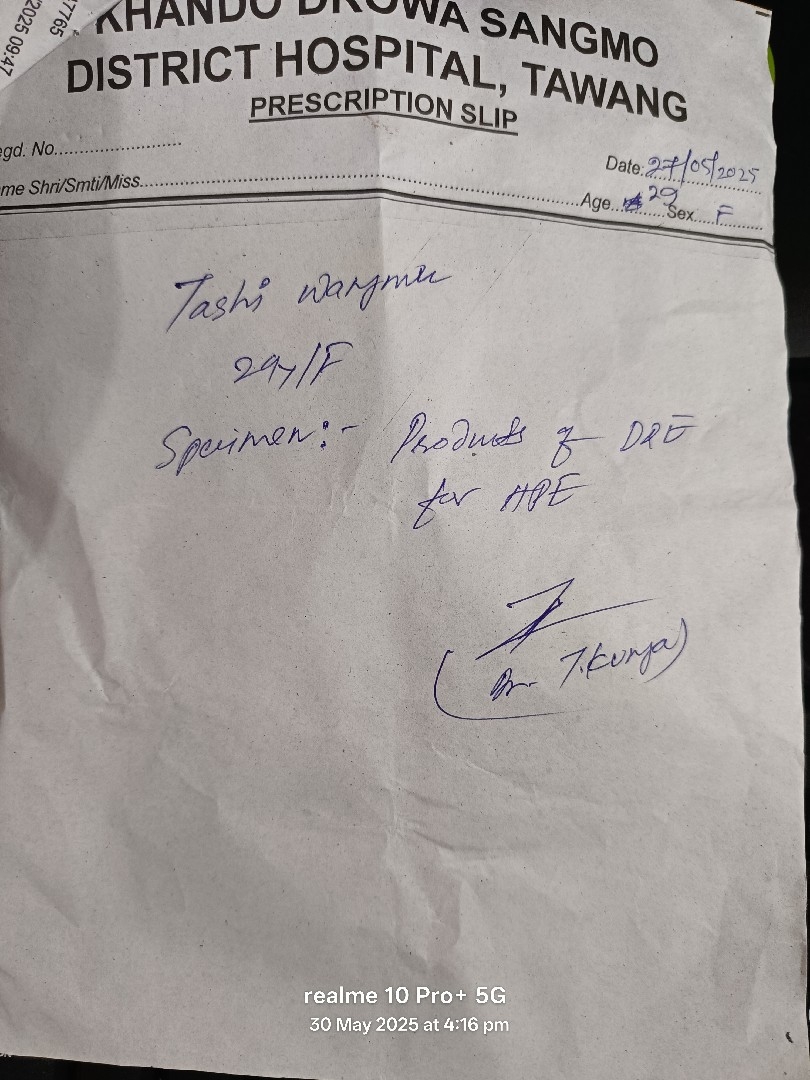 7765
2025 09:47
KHANDO DROWA SANGMO
DISTRICT HOSPITAL, TAWANG
PRESCRIPTION SLIP
egd. No.
Date: 27/05/2025
me Shri/Smti/Miss
Age 29 Sex F
Tashi Wangmu
29y/F
Specimen:- Products of D&E
for HPE
(Dr. T. Kunga)
realme 10 Pro+ 5G
30 May 2025 at 4:16 pm